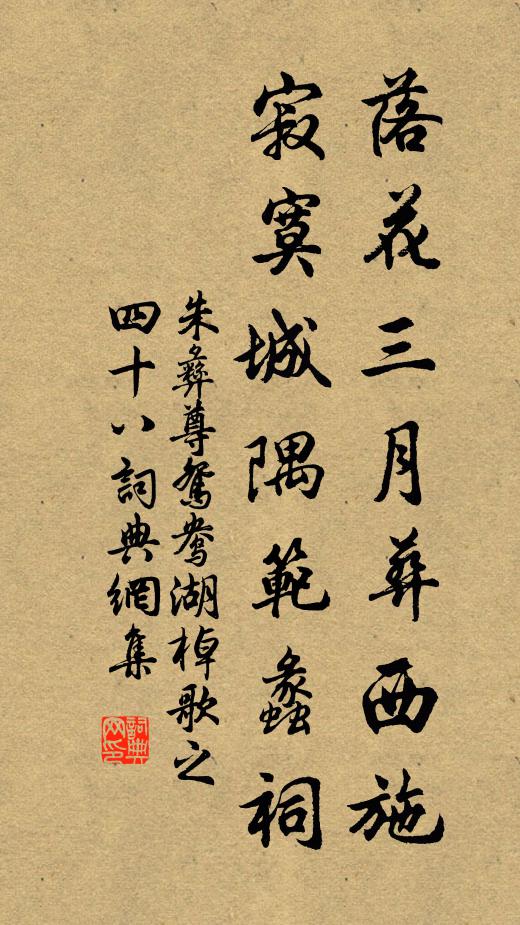 落花三月葬西施
寂寞城隅範蠡祠
朱彝尊鴛鴦湖棹歌之
四十八詞典網集
詞典网印